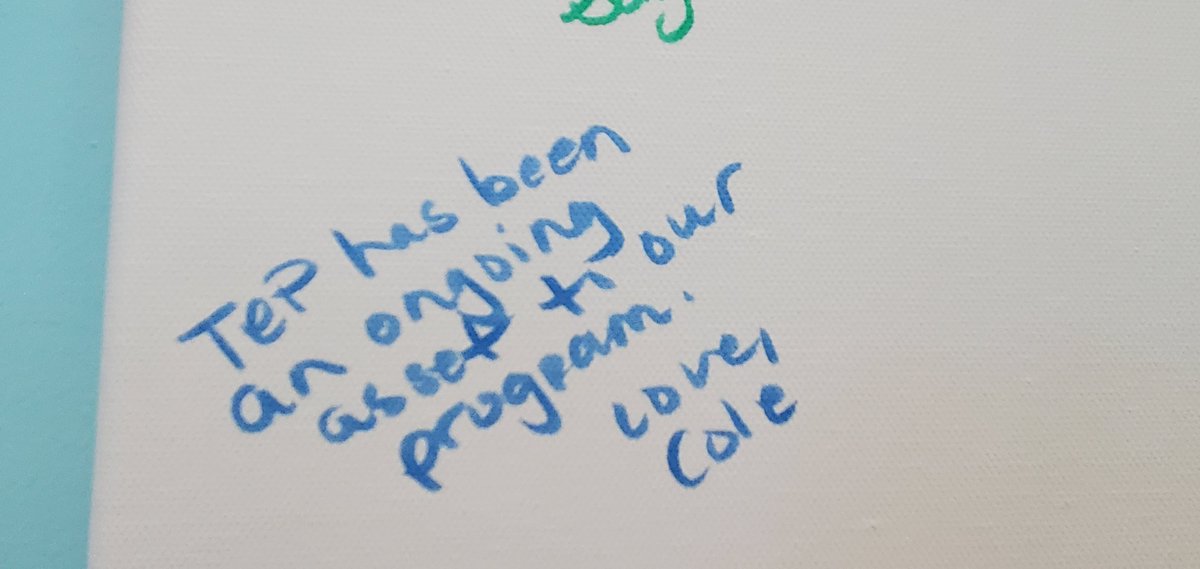 TEP has been
an ongoing
asset to our
program.
Love,
Cole